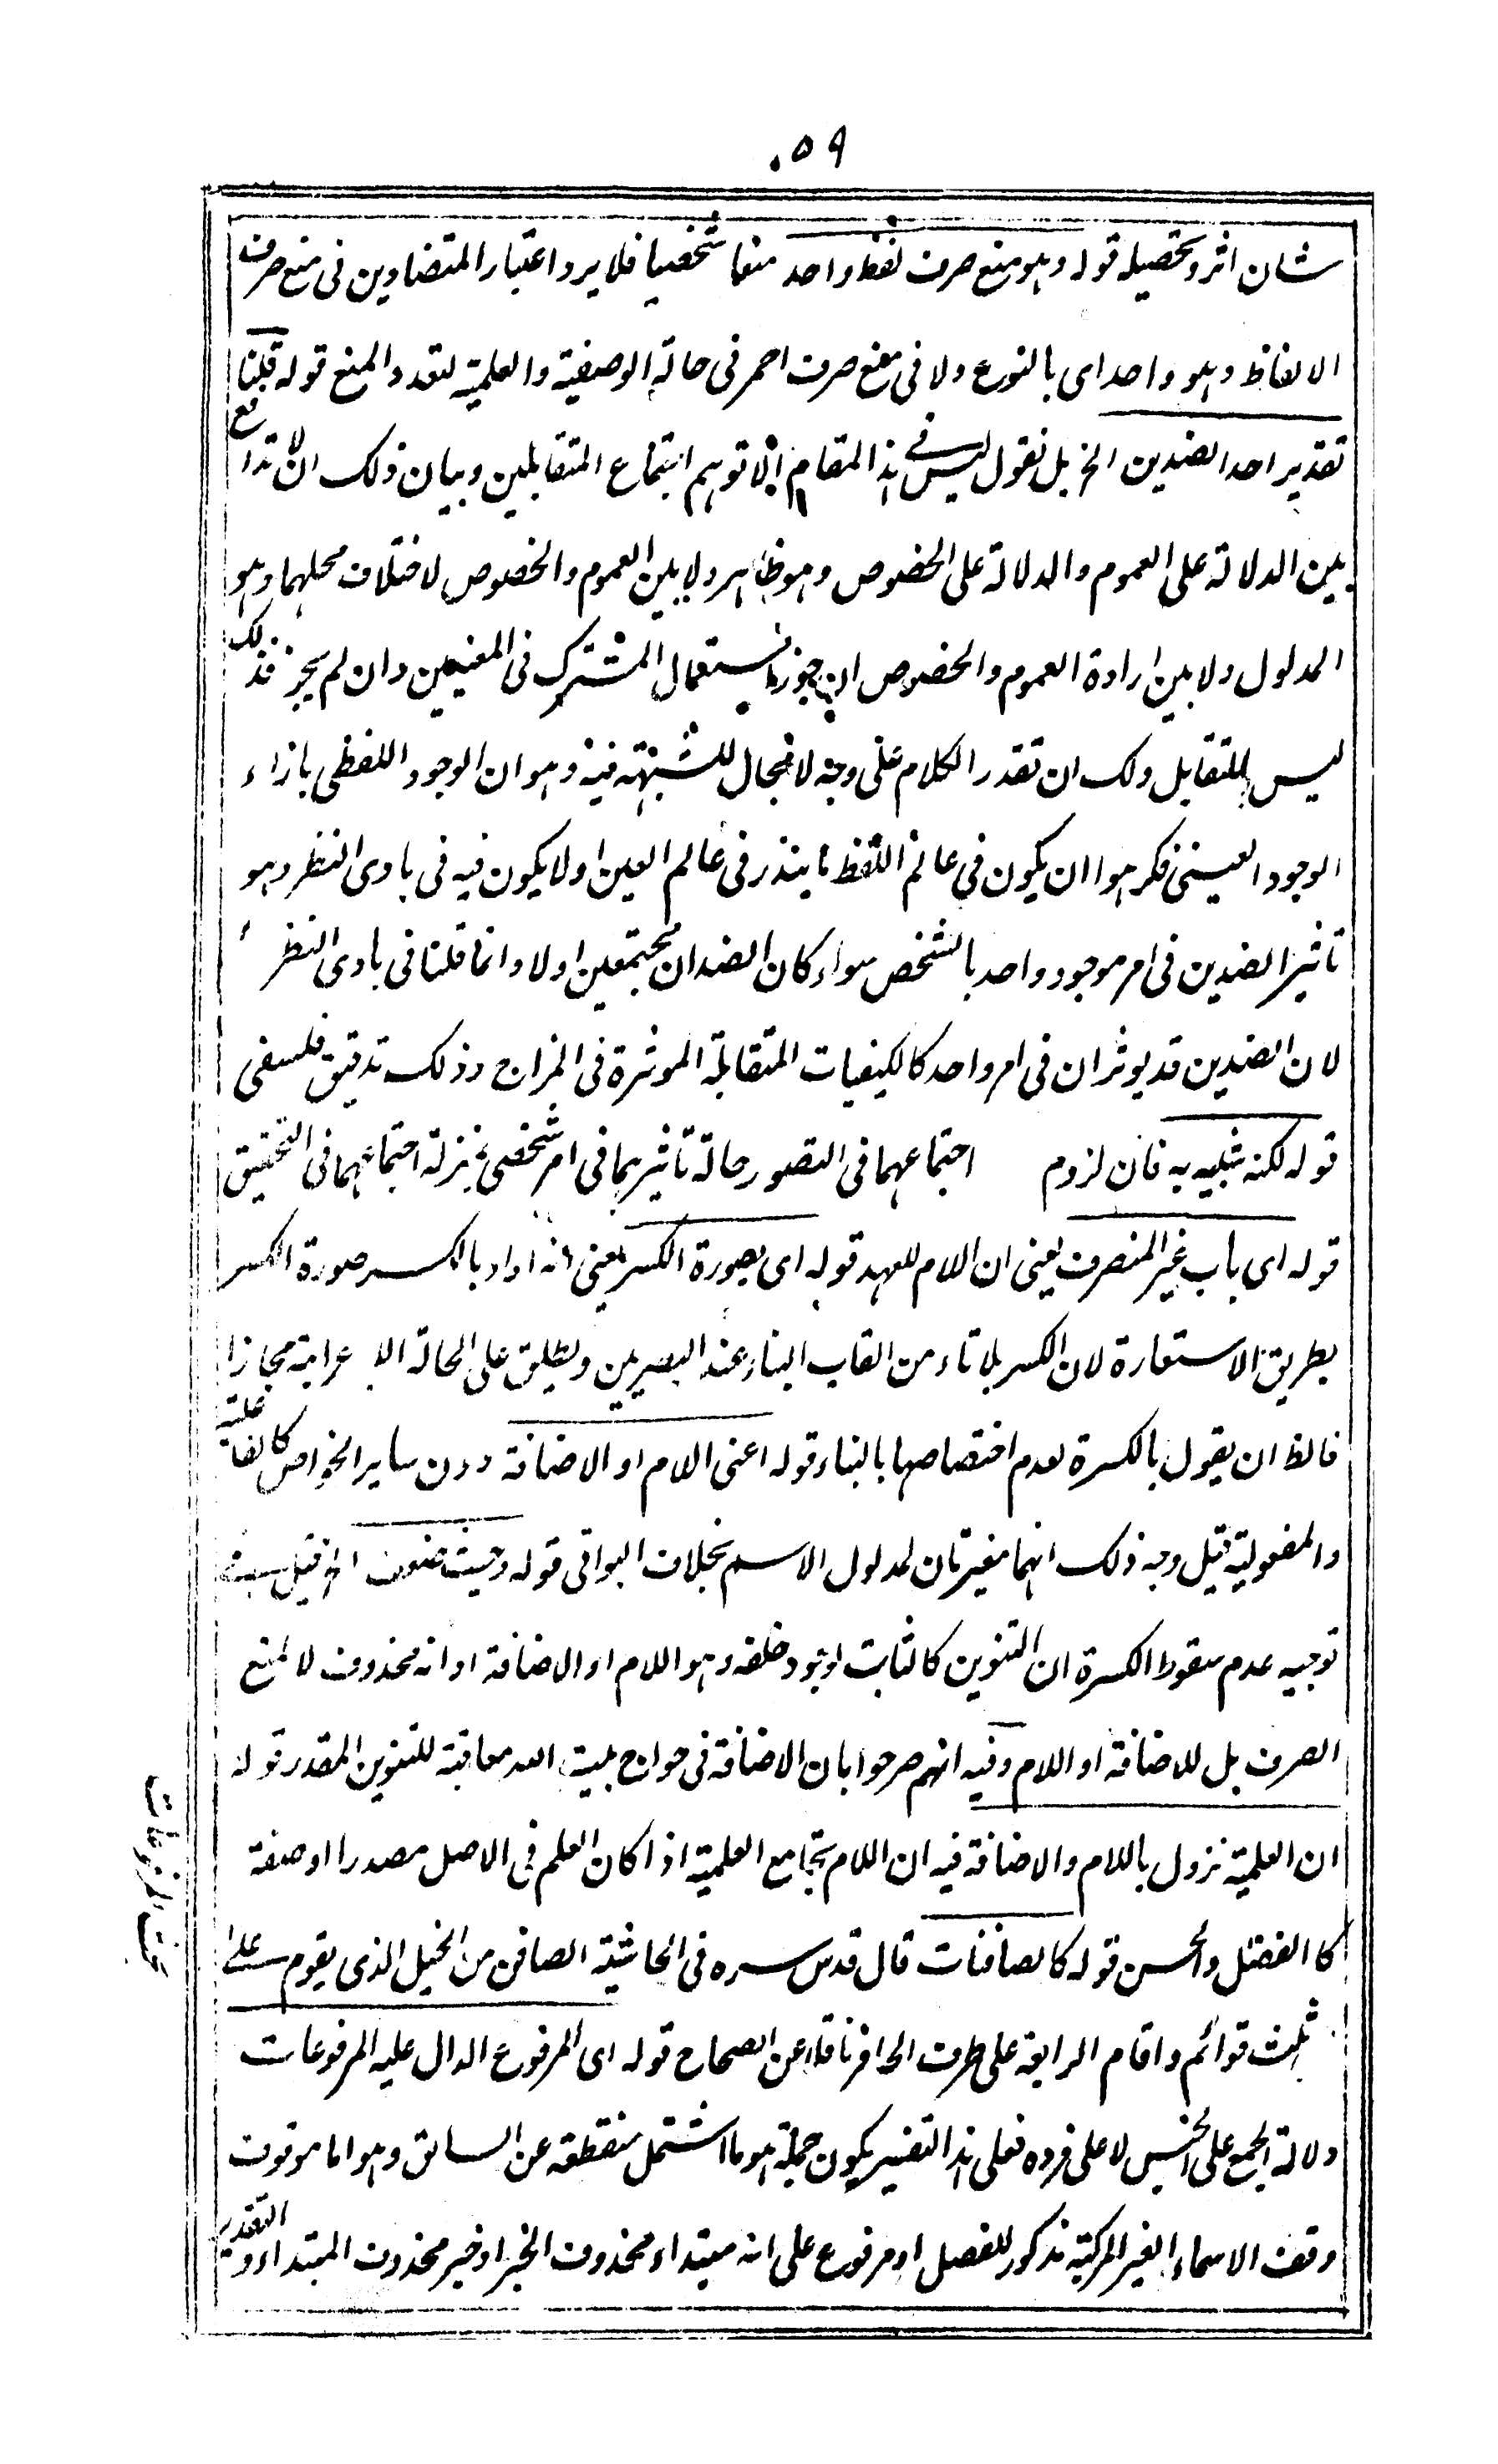 ٥٩
شان اثر وتحصيله قوله وهو منع صرف لفظ واحد منعا شخصيا فلا يرد اعتبار المتضادين فى منع صرف
الالفاظ وهو واحد اى بالنوع ولا فى منع صرف احمر فى حالة الوصفية والعلمية لتعدد المنع قوله قلنا
تقدير احد الضدين الخ بل نقول ليس فى هذا المقام الا توهم اجتماع المتقابلين وبيان ذلك ان لا تدافع
بين الدلالة على العموم والدلالة على الخصوص وهو ظاهر ولا بين العموم والخصوص لاختلاف محلهما وهو
المدلول ولا بين ارادة العموم والخصوص ان جوز استعمال المشترك فى المعنيين وان لم يجز فذلك
ليس للتقابل ولك ان تقدر الكلام على وجه لا مجال للشبهة فيه وهو ان الوجود اللفظى بازاء
الوجود العينى فكرهوا ان يكون فى عالم اللفظ ما يندر فى عالم العين او لا يكون فيه فى بادى النظر وهو
تاثير الضدين فى امر موجود واحد بالشخص سواء كان الضدان مجتمعين او لا وانما قلنا فى بادى النظر
لان الضدين قد يوثران فى امر واحد كالكيفيات المتقابلة الموثرة فى المزاج وذلك تدقيق فلسفى
قوله لكنه شبيه به فان لزوم اجتماعهما فى التصور حالة تاثيرهما فى امر شخصى بمنزلة اجتماعهما فى التحقيق
قوله اى باب غير المنصرف يعنى ان اللام للعهد قوله اى بصورة الكسر يعنى انه اراد بالكسر صورة الكسر
بطريق الاستعارة لان الكسر بلا تاء من القاب البناء عند البصريين ويطلق على الحالة الاعرابية مجازا
فالظ ان يقول بالكسرة لعدم اختصاصها بالبناء قوله اعنى اللام او الاضافة دون ساير الخواص كالفاعلية
والمفعولية قيل وجه ذلك انهما مغيرتان لمدلول الاسم بخلاف البواقى قوله وحيث ضعف الخ قيل
توجيه عدم سقوط الكسرة ان التنوين كالثابت لوجود خلفه وهو اللام او الاضافة او انه محذوف لا لمنع
الصرف بل للاضافة او اللام وفيه انهم صرحوا بان الاضافة فى حواج بيت الله معاقبة للتنوين المقدر قوله
ان العلمية تزول باللام والاضافة فيه ان اللام تجامع العلمية اذا كان العلم فى الاصل مصدرا او صفة
كالفضل والحسن قوله كالصافنات قال قدس سره فى الحاشية الصافن من الخيل الذى يقوم على
ثلث قوائم واقام الرابعة على طرف الحافر ناقلا عن الصحاح قوله اى المرفوع الدال عليه المرفوعات
دلالة الجمع على الجنس لا على فرده فعلى هذا التفسير يكون جملة هو ما اشتمل منقطعة عن السابق وهو اما موقوف
وقف الاسماء الغير المركبة مذكور للفصل او مرفوع على انه مبتداء محذوف الخبر او خبر محذوف المبتداء والتقدير
بحث المرفوعات